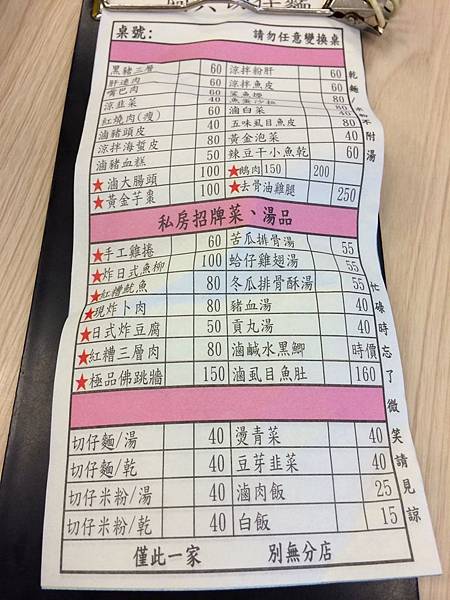 桌號: 請勿任意變換桌
黑豬三層 60 涼拌粉肝 60
肝連肉 60 涼拌魚皮 60
嘴巴肉 60 鯊魚煙 80
涼韭菜 40 魚蛋沙拉 80
紅燒肉(瘦) 80 滷白菜 40
滷豬頭皮 40 五味虱目魚皮 80
涼拌海蜇皮 80 黃金泡菜 40
滷豬血糕 50 辣豆干小魚乾 60
★滷大腸頭 100 ★鵝肉 150 200
★黃金芋棗 100 ★去骨油雞腿 250
私房招牌菜、湯品
★手工雞捲 60 苦瓜排骨湯 55
★炸日式魚柳 100 蛤仔雞翅湯 55
★紅糟魷魚 80 冬瓜排骨酥湯 55
★現炸卜肉 80 豬血湯 40
★日式炸豆腐 50 貢丸湯 40
★紅糟三層肉 80 滷鹹水黑鯽 時價
★極品佛跳牆 150 滷虱目魚肚 160
切仔麵/湯 40 燙青菜 40
切仔麵/乾 40 豆芽韭菜 40
切仔米粉/湯 40 滷肉飯 25
切仔米粉/乾 40 白飯 15
僅此一家 別無分店
乾麵/米粉不附湯
忙碌時忘了微笑請見諒